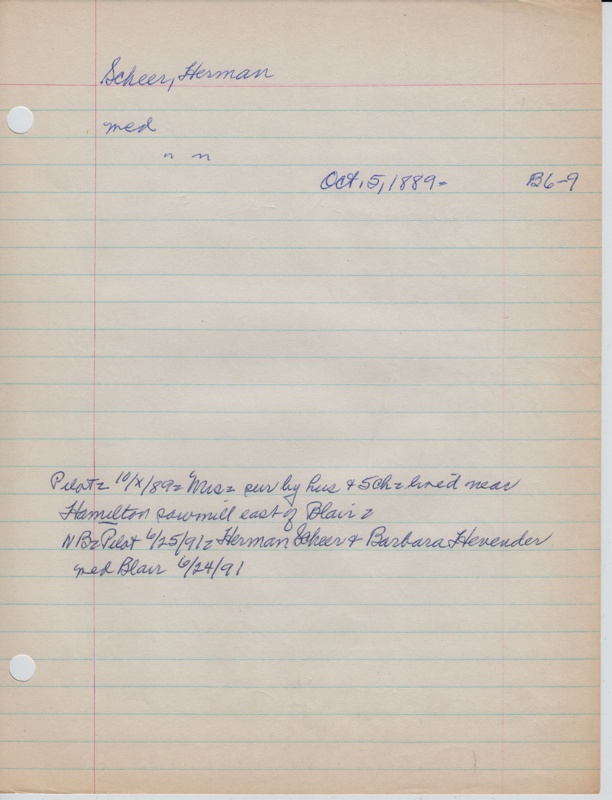 Scheer, Herman
med
" "
Oct. 5, 1889- B6-9
Pilot= 10/X/89= Mrs= sur by hus & 5ch= lived near
Hamilton sawmill east of Blair=
NB= Pilot 6/25/91= Herman Scheer & Barbara Hevender
med Blair 6/24/91